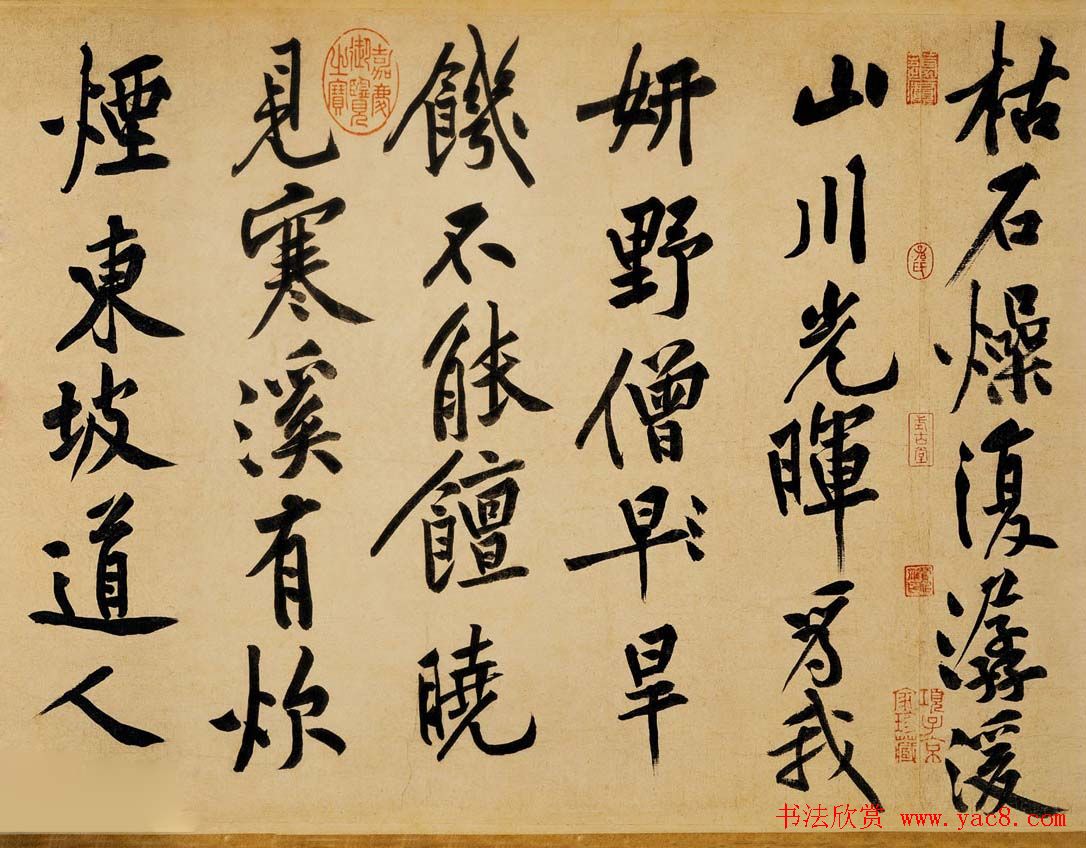 枯石燥復潺湲
山川光暉為我
妍野僧早旱
饑不能饘曉
見寒溪有炊
煙東坡道人
嘉慶御覽之寶
式古堂
項子京家珍藏
书法欣赏 www.yac8.com